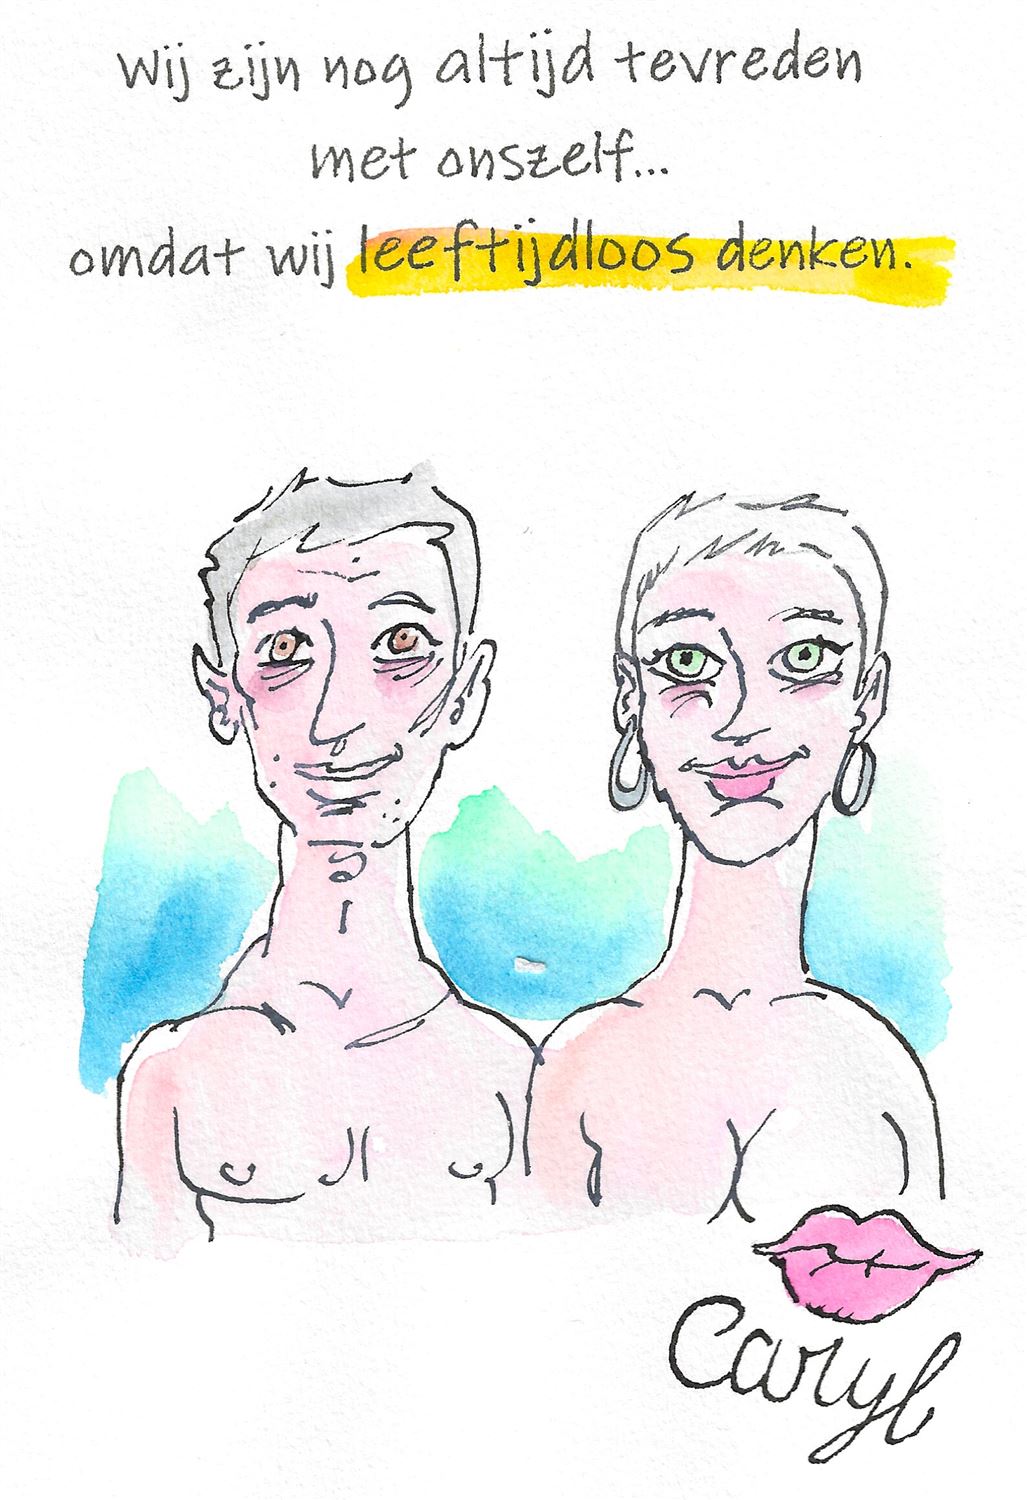 Wij zijn nog altijd tevreden
met onszelf...
omdat wij leeftijdloos denken.
Caryl